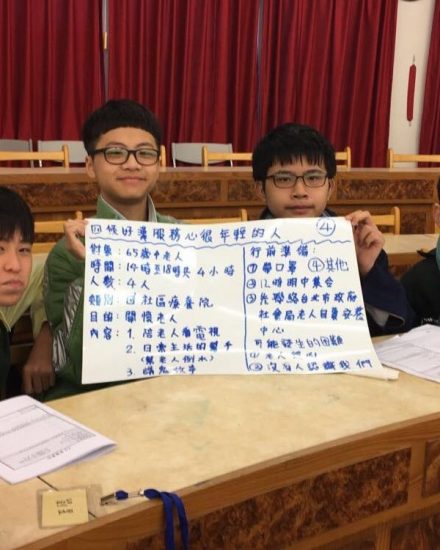 四條好漢服務心很年輕的人 ④
對象：65歲中老人
時間：14時至18時共4小時
人數：4人
類別：社區療養院
目的：關懷老人
內容：1. 陪老人看電視
2. 日常生活的幫手
(幫老人倒水)
3. 故事
行前準備：
①帶口罩 ④其他
②12時明中集合
③先聯絡台北市政府
社會局老人自費安養
中心
可能發生的困難
①老人
②沒有人認識我們